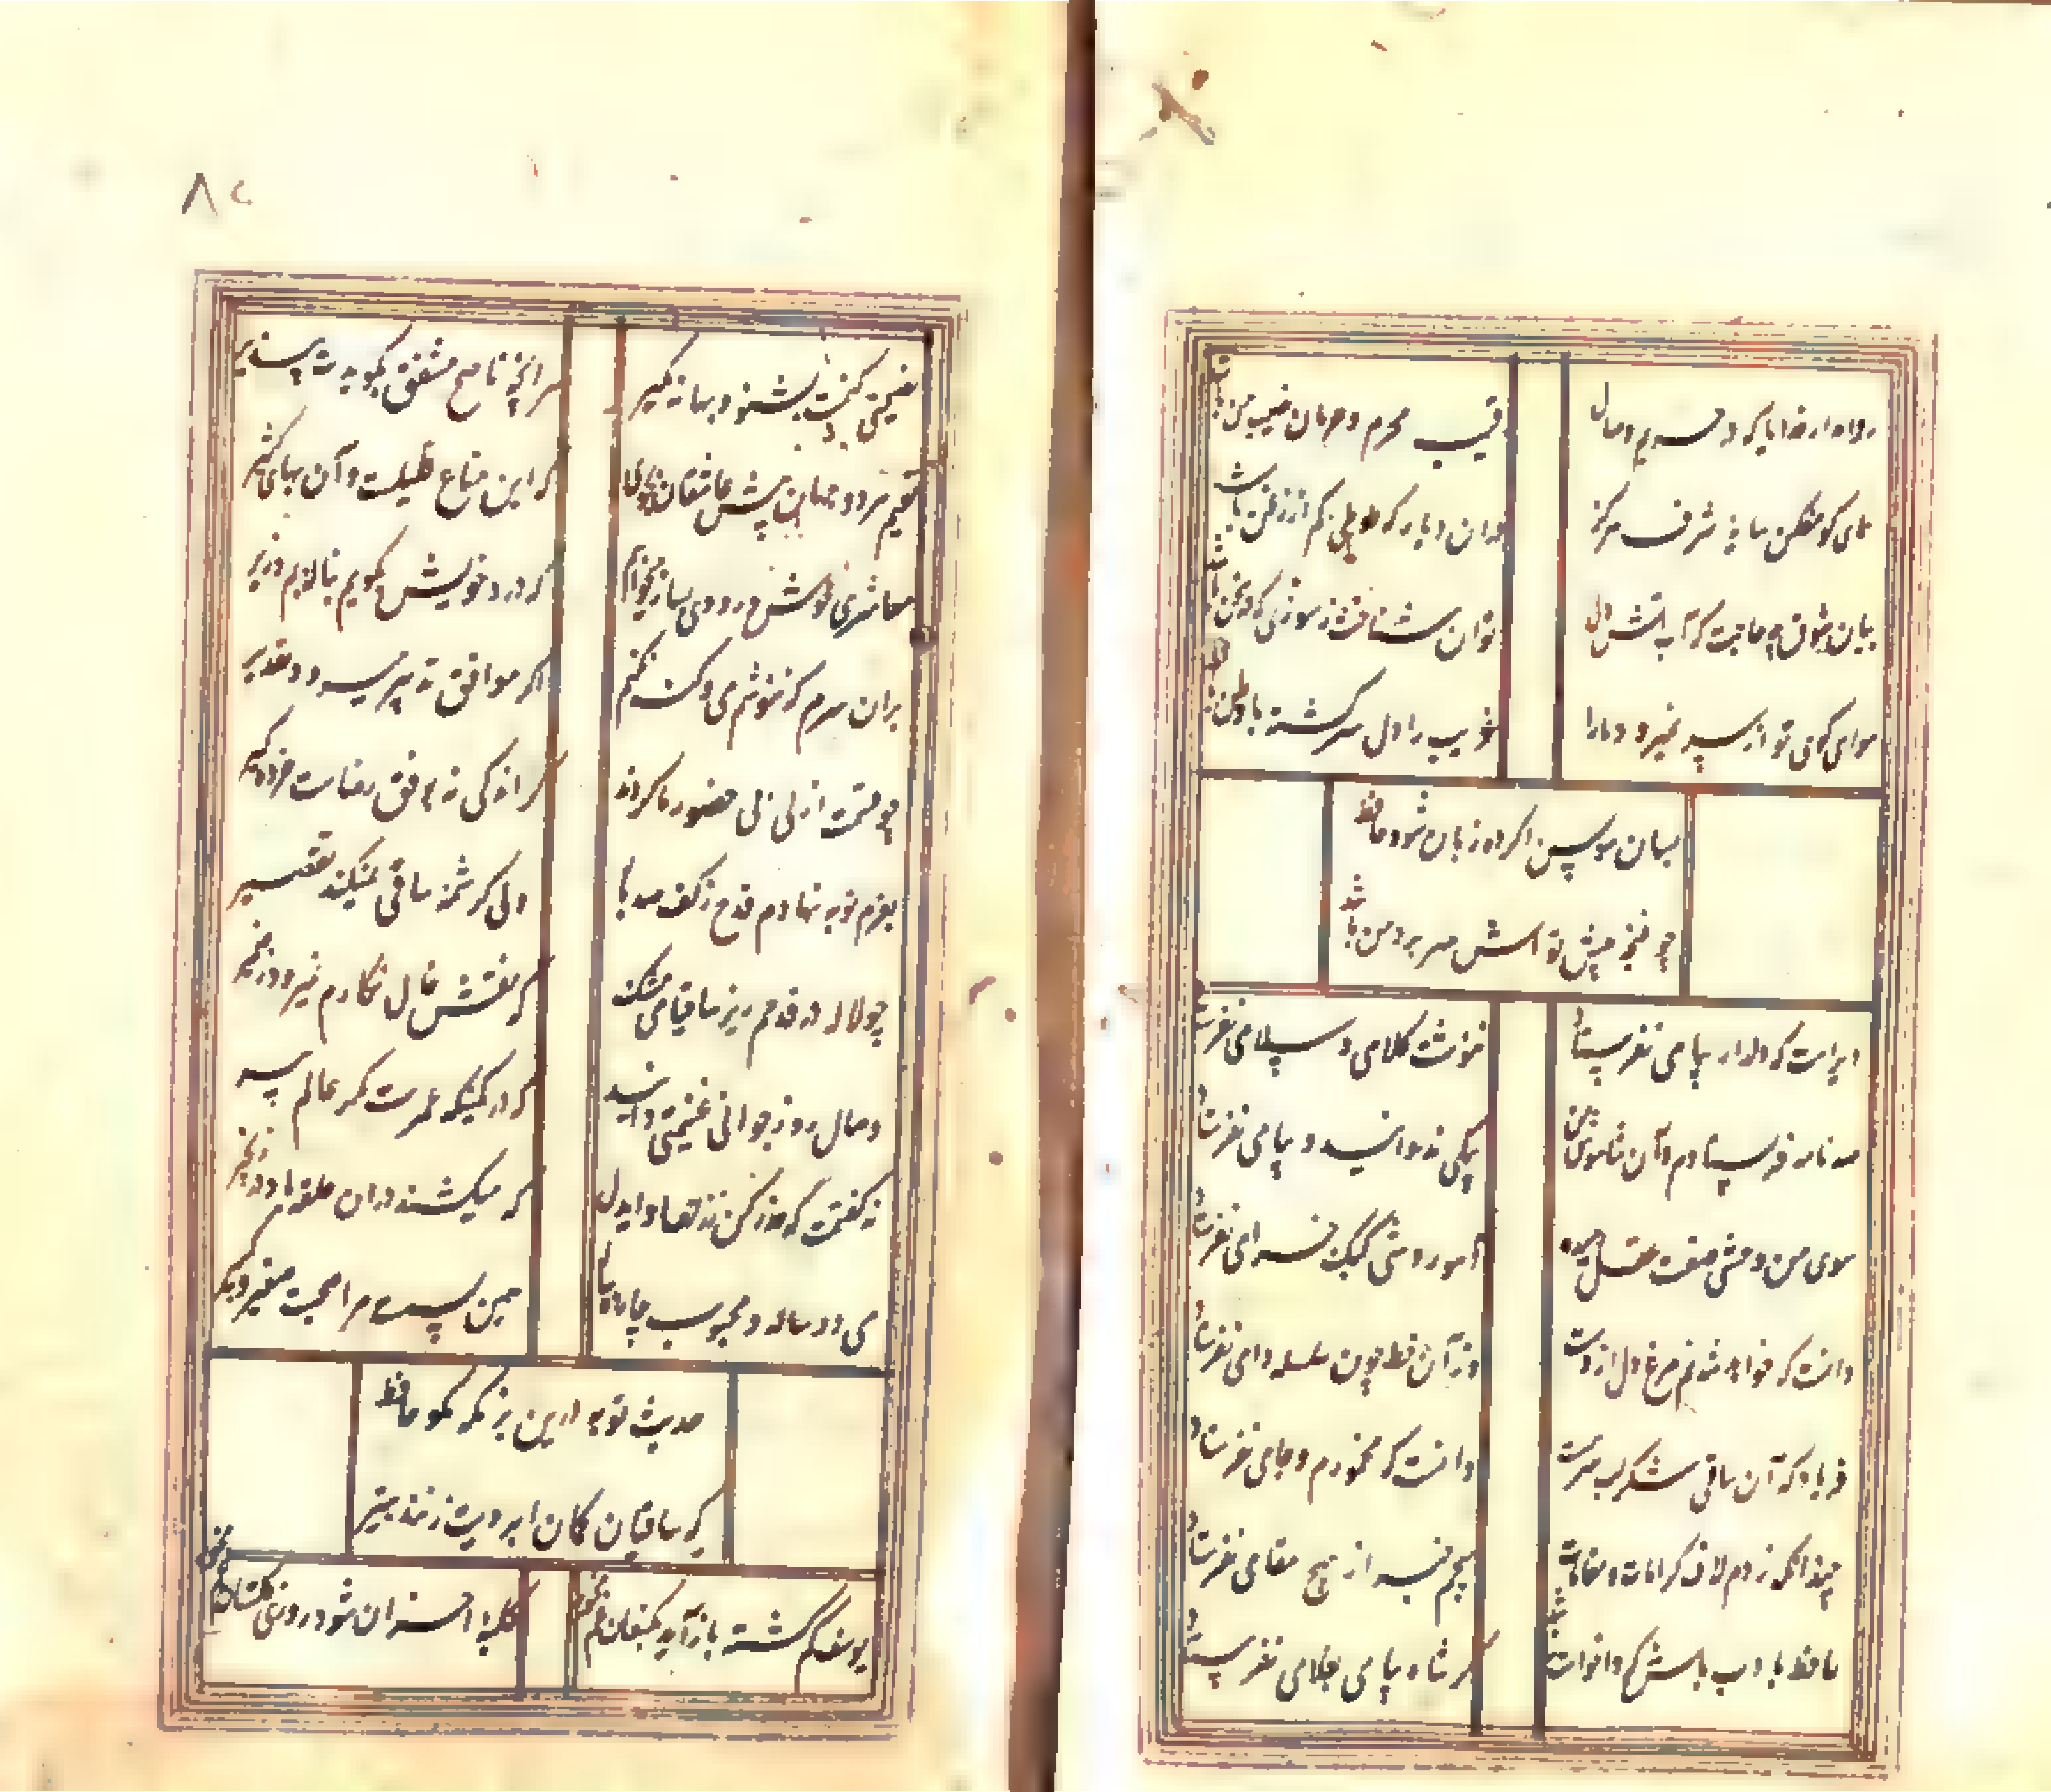 روا مدار خدایا که در حریم وصال
رقیب محرم و حرمان نصیب من باشد
همای کو مفکن سایه شرف هرگز
بدان دیار که طوطی کم از زغن باشد
بیان شوق چه حاجت که آتش دل
توان شناخت ز سوزی که در سخن باشد
هوای کوی تو از سر نمیرود ما را
غریب را دل سرگشته با وطن باشد
بسان سوسن اگر ده زبان شود حافظ
چو غنچه پیش تواش مهر بر دهن باشد
دیرست که دلدار پیامی نفرستاد
ننوشت کلامی و سلامی نفرستاد
صد نامه فرستادم و آن
پیکی ندوانید و پیامی نفرستاد
سوی من وحشی صفت عقل رمیده
آهو روشی کبک خرامی نفرستاد
دانست که خواهد شدنم مرغ دل از دست
وز آن خط چون سلسله دامی نفرستاد
فریاد که آن ساقی شکر لب سرمست
دانست که مخمورم و جامی نفرستاد
چندانکه زدم لاف کرامات و مقامات
هیچم خبر از هیچ مقامی نفرستاد
حافظ بادب باش که واخواست نباشد
گر شاه پیامی بغلامی نفرستاد
۸۲
نصیحتی کنمت بشنو و بهانه مگیر
هر آنچه ناصح مشفق بگویدت بپذیر
نعیم هر دو جهان پیش عاشقان بجوی
که این متاع قلیلست و آن بهای کثیر
معاشری خوش و رودی بساز میخواهم
که درد خویش بگویم بناله بم و زیر
بران سرم که ننوشم می و گنه نکنم
اگر موافق تدبیر من شود تقدیر
چو قسمت ازلی بی حضور ما کردند
گر اندکی نه بوفق رضاست خرده مگیر
بعزم توبه نهادم قدح ز کف صد بار
ولی کرشمه ساقی نمیکند تقصیر
چو لاله در قدحم ریز ساقیا می و مشک
که نقش خال نگارم نمیرود ز ضمیر
وصال روز جوانی غنیمتی دانید
که در کمینگه عمرست مکر عالم پیر
نه گفتمت که حذر کن ز زلف او ایدل
که میکشند در ان حلقه باد در زنجیر
می دو ساله و محبوب چارده ساله
همین بسست مرا صحبت صغیر و کبیر
حدیث توبه درین بزمگه مگو حافظ
که ساقیان کمان ابرویت زنند بتیر
یوسف گم گشته باز آید بکنعان غم مخور
کلبه احزان شود روزی گلستان غم مخور